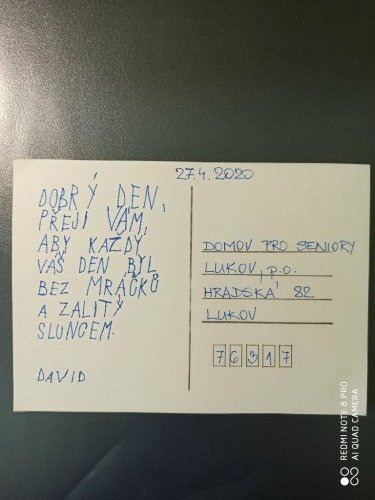 27.4.2020
DOBRÝ DEN,
PŘEJI VÁM,
ABY KAŽDÝ
VÁŠ DEN BYL
BEZ MRÁČKŮ
A ZALITÝ
SLUNCEM.
DAVID
DOMOV PRO SENIORY
LUKOV, p.o.
HRADSKÁ 82
LUKOV
76317
REDMI NOTE 8 PRO
AI QUAD CAMERA